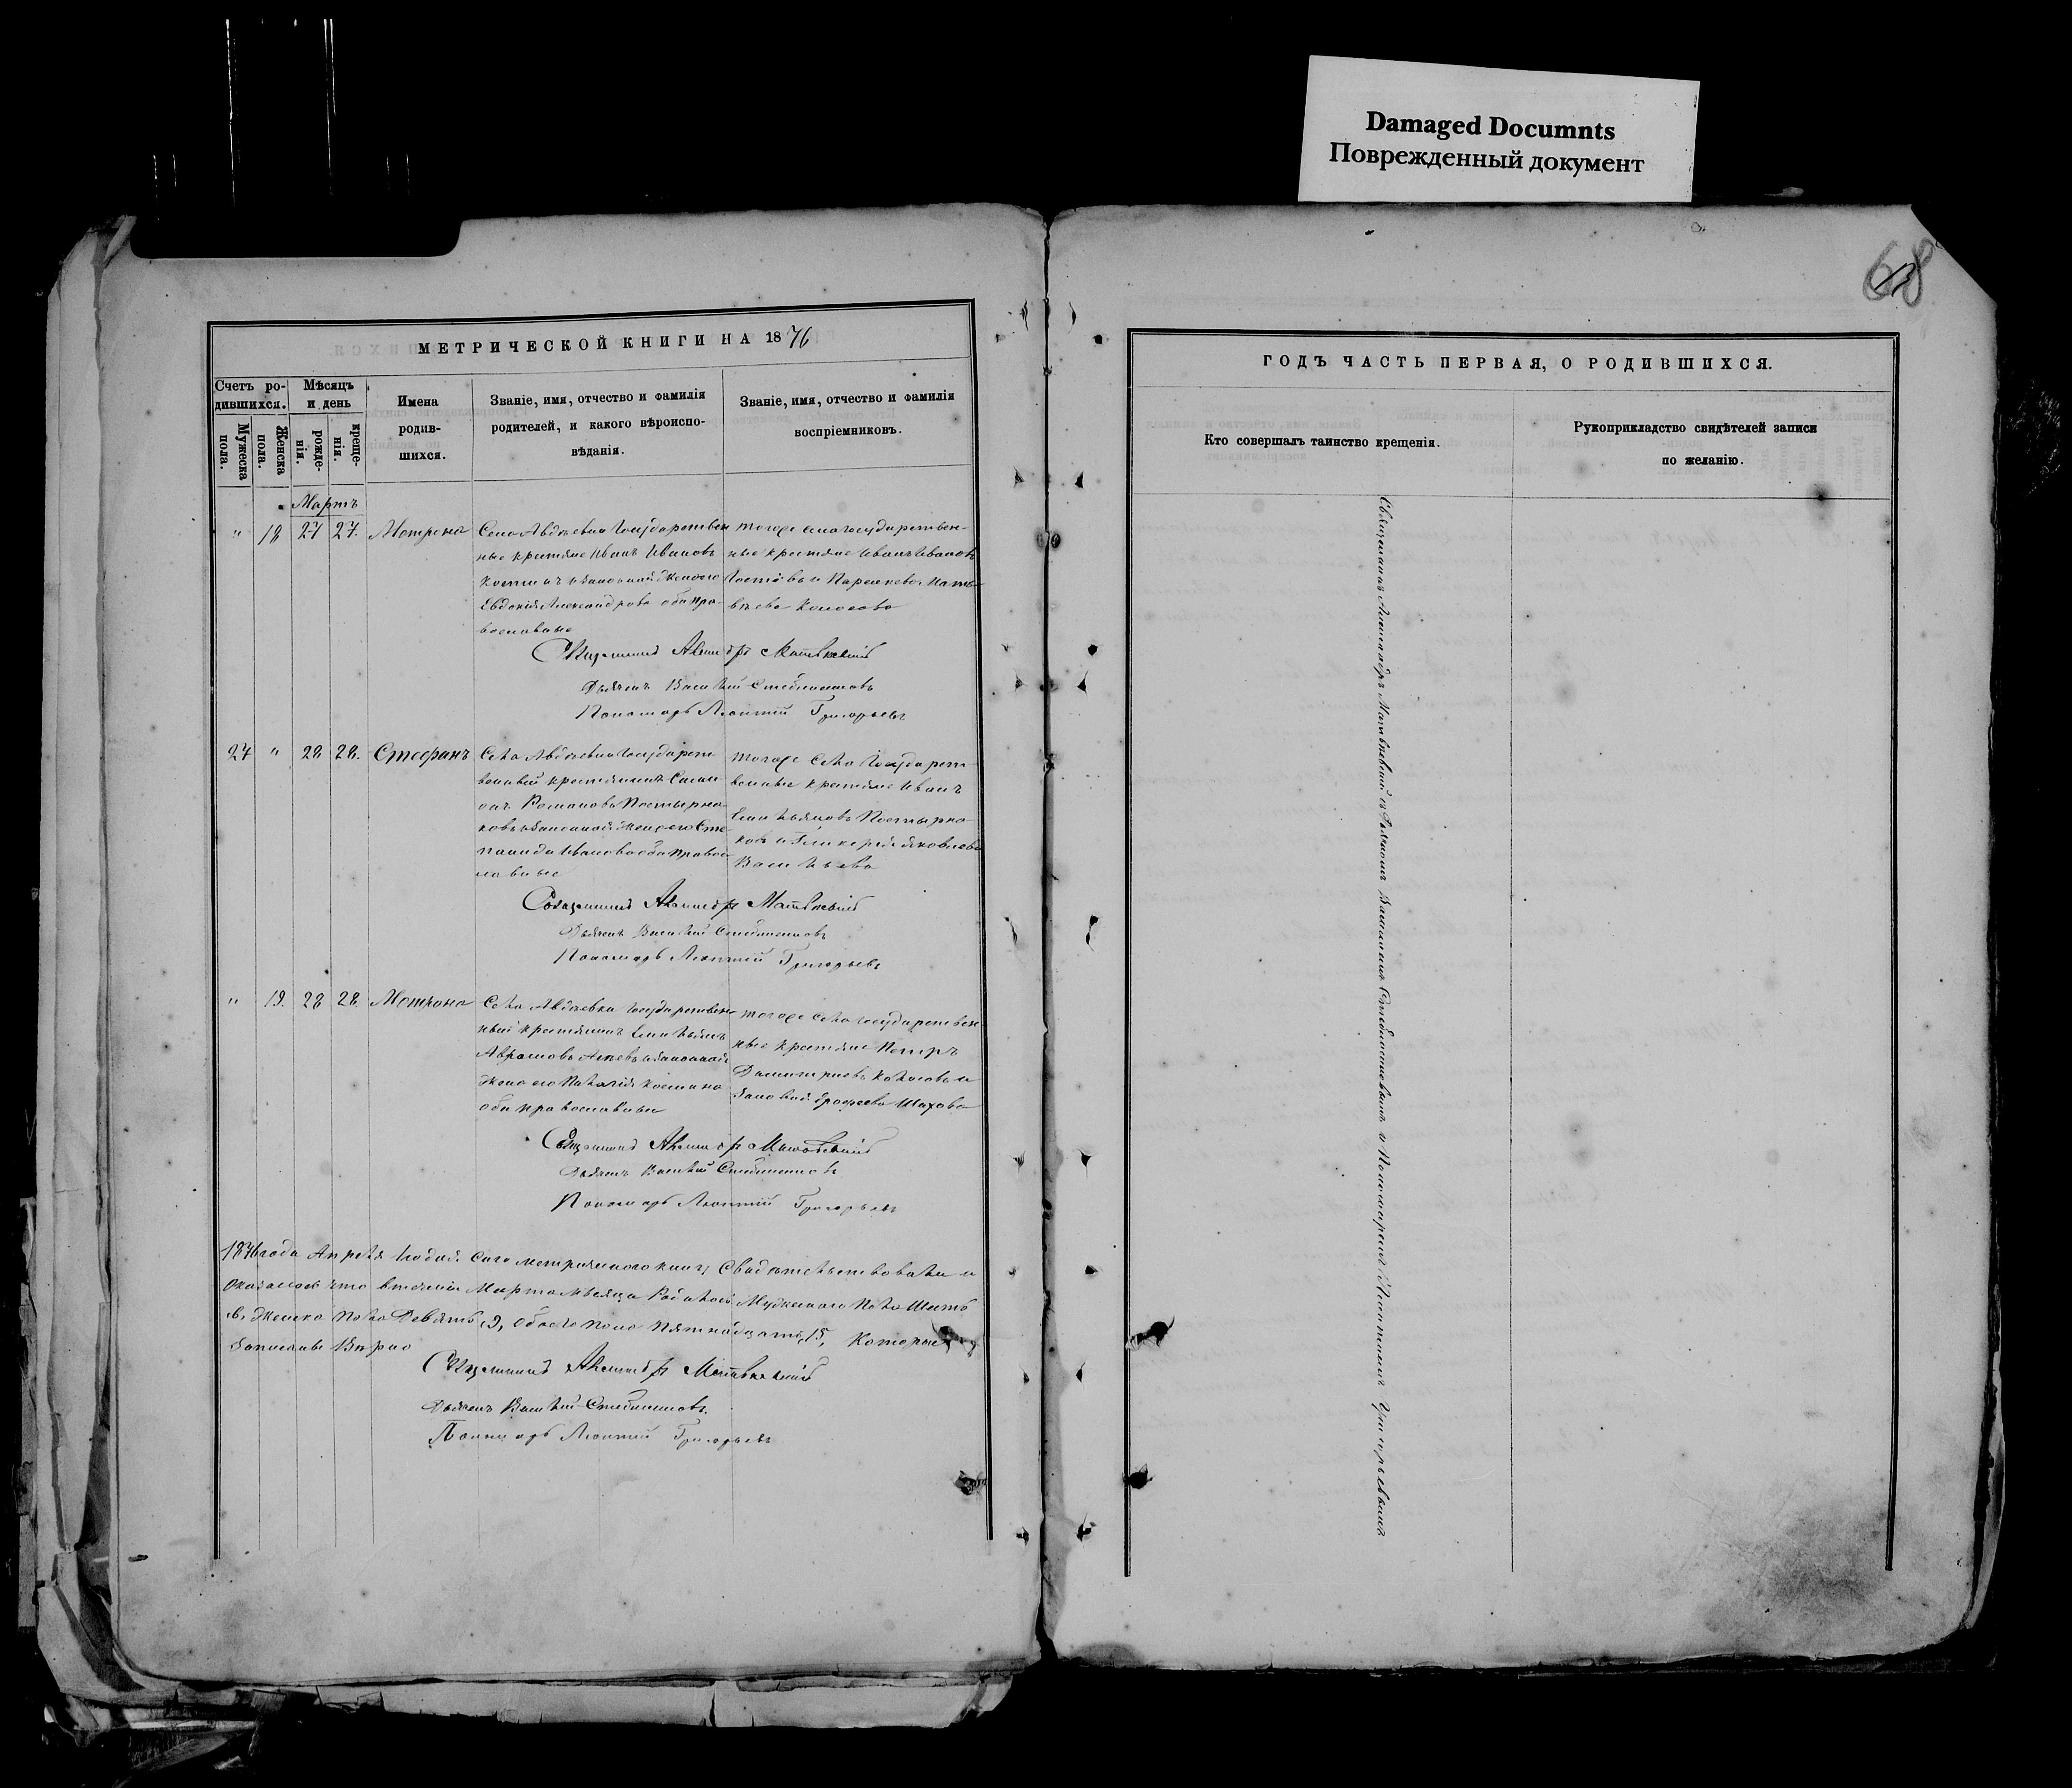 Damaged Documnts
Поврежденный документ
68
МЕТРИЧЕСКОЙ КНИГИ НА 1876
Счетъ ро-
дившихся.
Мужеска
пола.
Женска
пола.
Мѣсяцъ
и день
рожде-
нія.
креще-
нія.
Имена
родив-
шихся.
Званіе, имя, отчество и фамилія
родителей, и какого вѣроиспо-
вѣданія.
Званіе, имя, отчество и фамилія
воспріемниковъ.
Мартъ
" 18 27 27. Метрона
Села Авдѣевки государствен
ные крестьяне Иванъ Ивановъ
Костинъ и законная жена его
Евдокія Александрова оба пра-
вославные
тогоже села государствен-
ные крестьяне Иванъ Ивановъ
и Параскева Мат-
вѣева
Священникъ Александръ Матвѣевскій
Дьячекъ Василій
Пономарь Леонтій Григорьевъ
27 " 28 28. Стефанъ
Села Авдѣевки государст
венный крестьянинъ
Романовъ Постырна-
ковъ и законная жена его Сте-
панида Иванова оба правос-
лавные
тогоже села государст
венные крестьяне Иванъ
Емильяновъ Постырна-
ковъ и Гликерія Яковлева
Васильева
Священникъ Александръ Матвѣевскій
Дьячекъ Василій
Пономарь Леонтій Григорьевъ
" 19. 28 28. Метрона
Села Авдѣевки государствен
ный крестьянинъ Емильянъ
Аврамовъ и законная
жена его
оба православные
тогоже села государствен-
ные крестьяне Петръ
Димитріевъ и
Шахова
Священникъ Александръ Матвѣевскій
Дьячекъ Василій
Пономарь Леонтій Григорьевъ
1876 года Апрѣля 1 сего свидѣтельствовали и
оказалось что въ теченіи Марта мѣсяца мужескаго пола шесть
6, женска пола девять, 9, обоего пола пятнадцать, 15, которые
записаны вѣрно
Священникъ Александръ Матвѣевскій
Дьячекъ Василій
Пономарь Леонтій Григорьевъ
ГОДЪ ЧАСТЬ ПЕРВАЯ, О РОДИВШИХСЯ.
Кто совершалъ таинство крещенія.
Рукоприкладство свидѣтелей записи
по желанію.
Священникъ Александръ Матвѣевскій съ Дьячкомъ Василіемъ и Пономаремъ Леонтіемъ Григорьевымъ